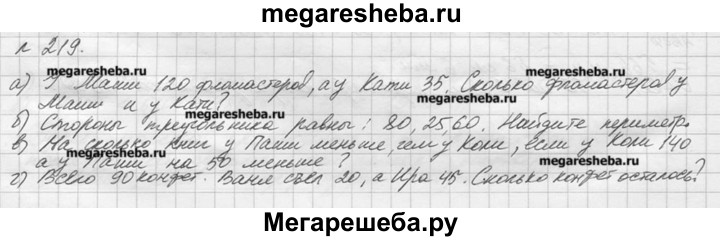 megaresheba.ru
№ 219.
megaresheba.ru
megaresheba.ru
а) У Маши 120 фломастеров, а у Кати 35. Сколько фломастеров у
Маши и у Кати?
megaresheba.ru
б) Стороны треугольника равны: 80, 25, 60. Найдите периметр.
в) На сколько книг у Паши меньше чем у Коли, если у Коли 140
а у Паши на 50 меньше?
megaresheba.ru
megaresheba.ru
г) Всего 90 конфет. Ваня съел 20, а Ира 45. Сколько конфет осталось?
Мегарешеба.ру